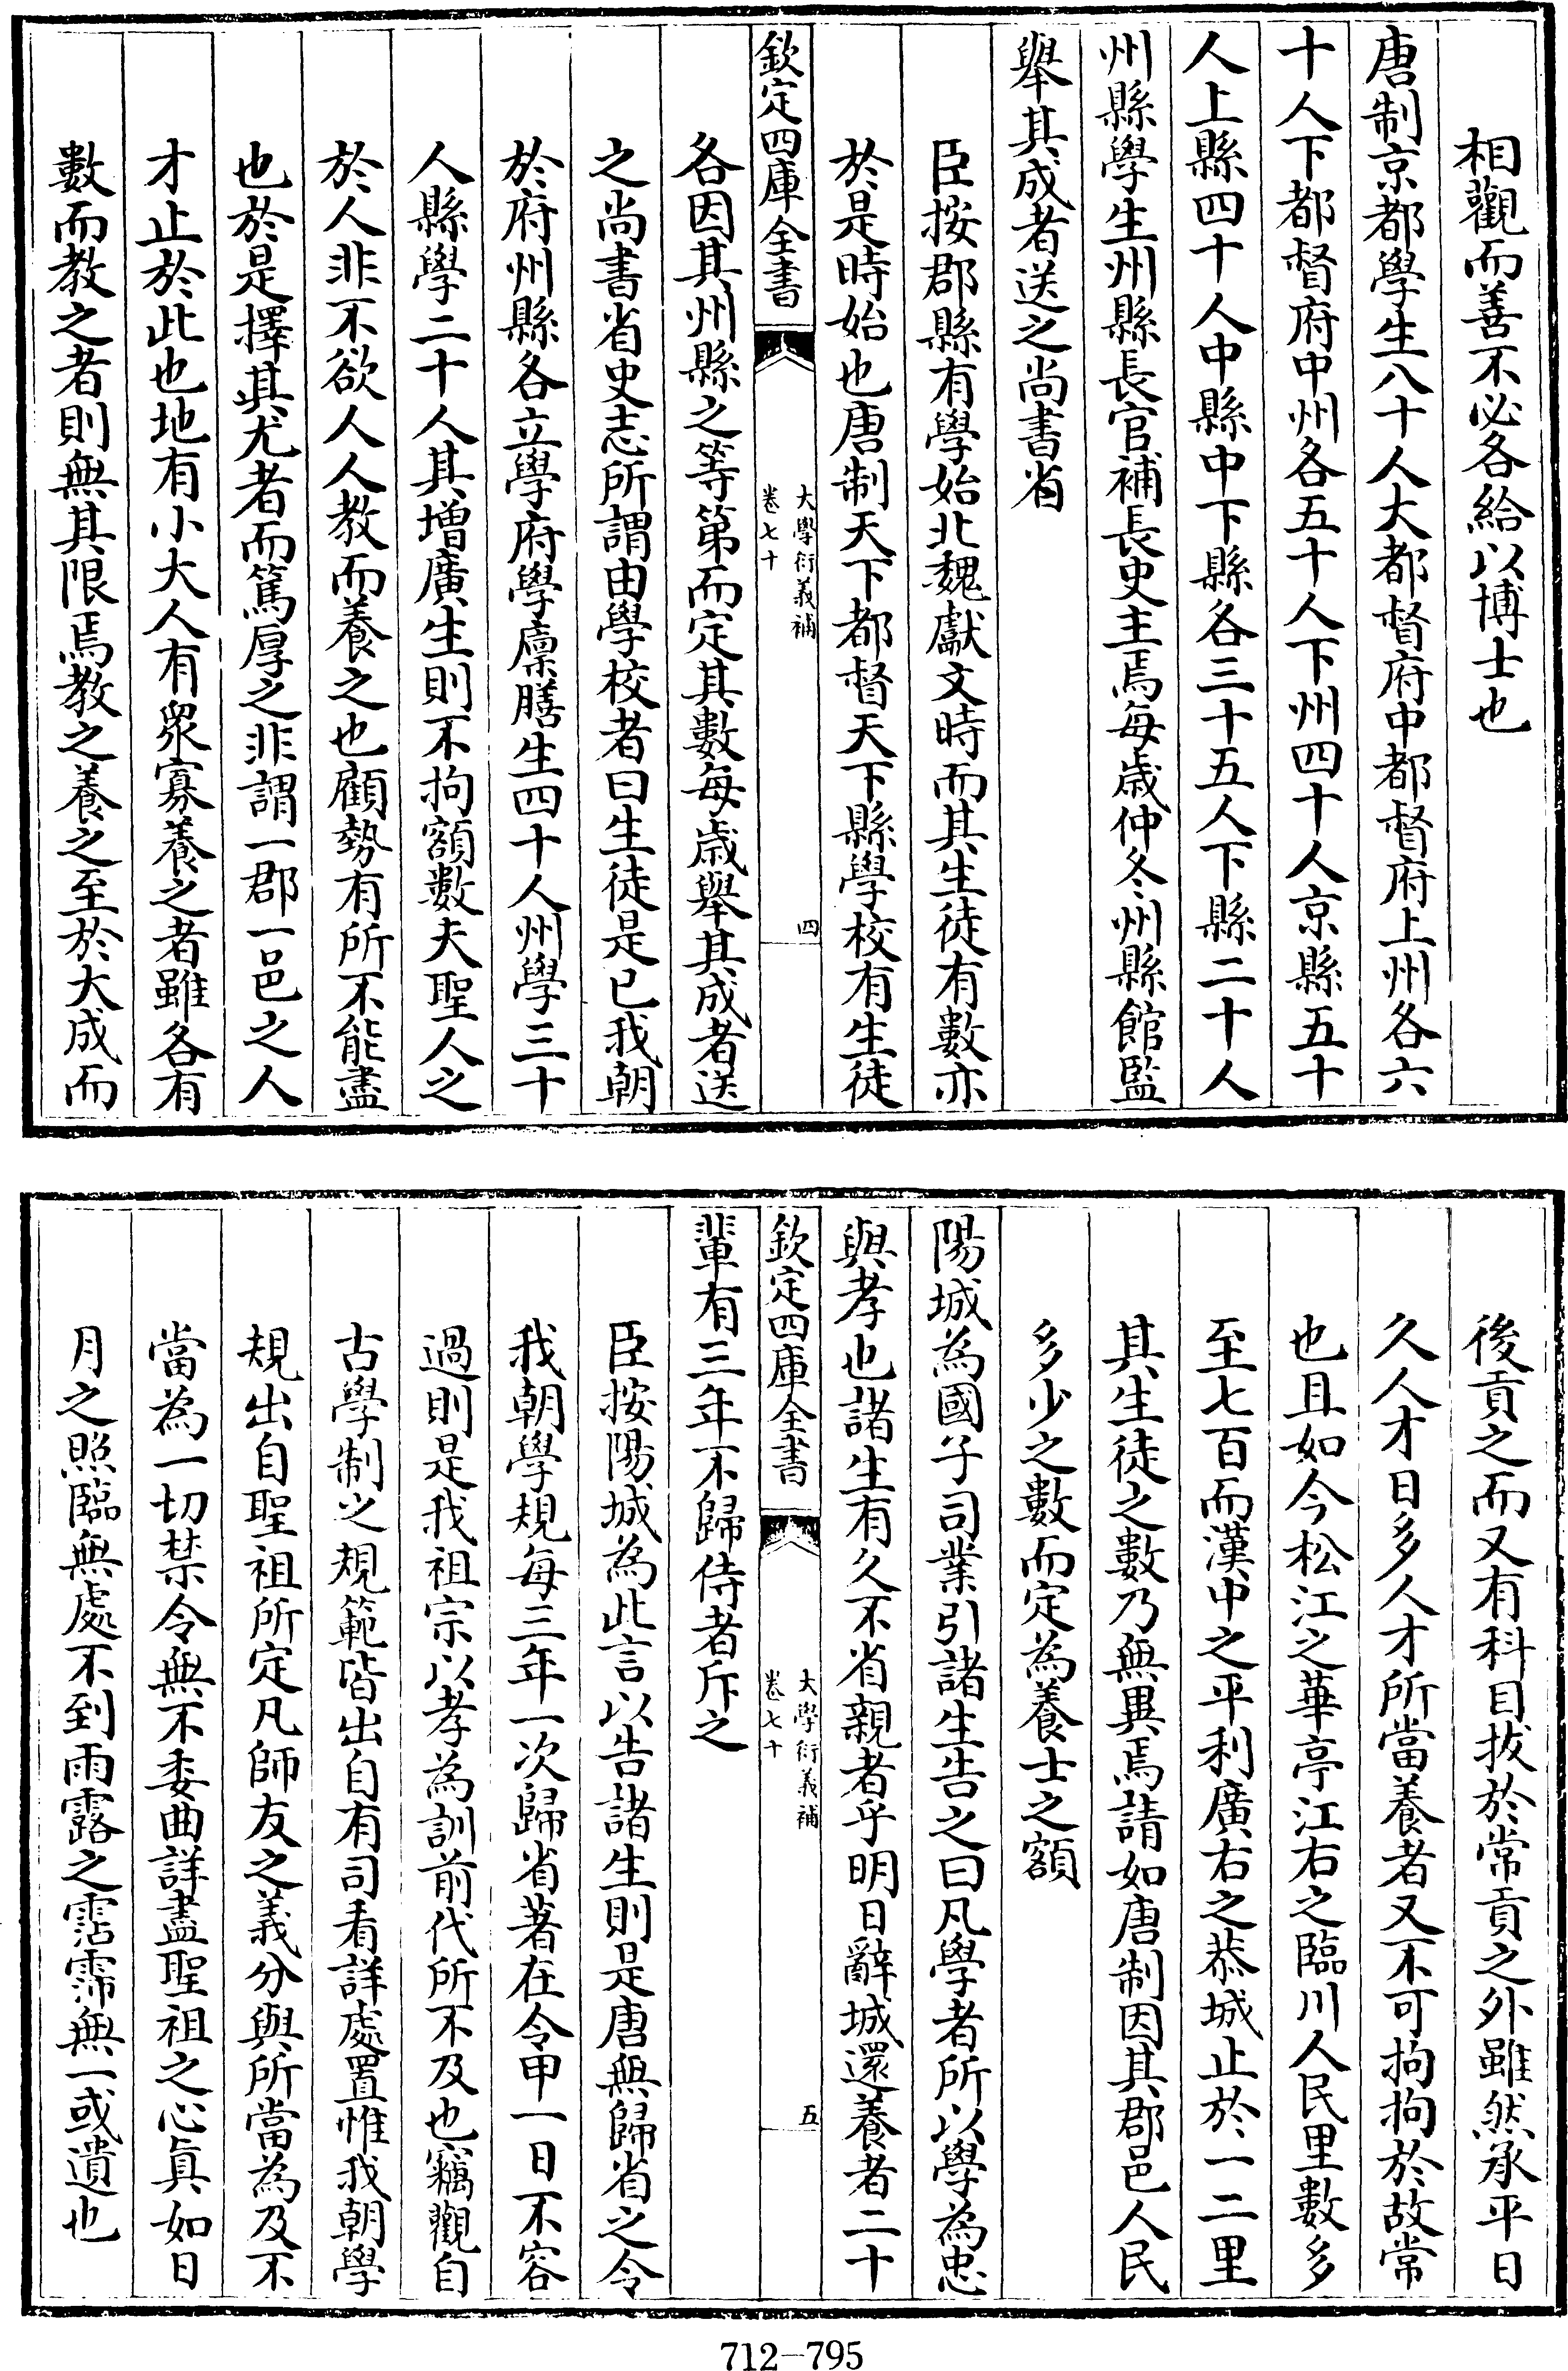 相觀而善不必各給以博士也
唐制京都學生八十人大都督府中都督府上州各六
十人下都督府中州各五十人下州四十人京縣五十
人上縣四十人中縣中下縣各三十五人下縣二十人
州縣學生州縣長官補長史主焉每歲仲冬州縣館監
舉其成者送之尚書省
臣按郡縣有學始北魏獻文時而其生徒有數亦
於是時始也唐制天下都督天下縣學校有生徒
欽定四庫全書
大學衍義補
卷七十
四
各因其州縣之等第而定其數每歲舉其成者送
之尚書省史志所謂由學校者曰生徒是已我朝
於府州縣各立學府學廩膳生四十人州學三十
人縣學二十人其增廣生則不拘額數夫聖人之
於人非不欲人人教而養之也顧勢有所不能盡
也於是擇其尤者而篤厚之非謂一郡一邑之人
才止於此也地有小大人有眾寡養之者雖各有
數而教之者則無其限焉教之養之至於大成而
後貢之而又有科目拔於常貢之外雖然承平日
久人才日多人才所當養者又不可拘拘於故常
也且如今松江之華亭江右之臨川人民里數多
至七百而漢中之平利廣右之恭城止於一二里
其生徒之數乃無異焉請如唐制因其郡邑人民
多少之數而定為養士之額
陽城為國子司業引諸生告之曰凡學者所以學為忠
與孝也諸生有久不省親者乎明日辭城還養者二十
欽定四庫全書
大學衍義補
卷七十
五
輩有三年不歸侍者斥之
臣按陽城為此言以告諸生則是唐無歸省之令
我朝學規每三年一次歸省著在令甲一日不容
過則是我祖宗以孝為訓前代所不及也竊觀自
古學制之規範皆出自有司看詳處置惟我朝學
規出自聖祖所定凡師友之義分與所當為及不
當為一切禁令無不委曲詳盡聖祖之心真如日
月之照臨無處不到雨露之霑霈無一或遺也
712-795